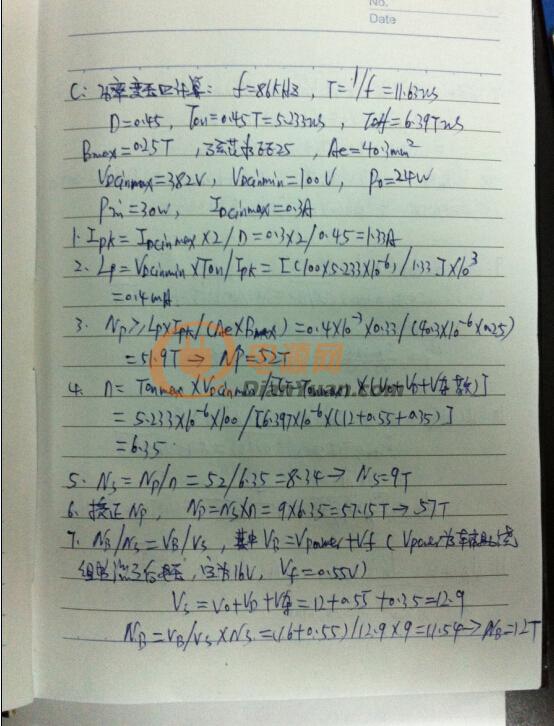 No.
Date
C: 功率变压器计算: f=86kHz, T=1/f=11.63us
D=0.45, Ton=0.45T=5.233us, Toff=6.397us
Bmax=0.25T, 磁芯为EE25, Ae=40.3mm²
VDCinmax=382V, VDCinmin=100V, Po=24W
Pin=30W, IDCinmax=0.3A
1. Ipk=IDCinmax×2/D=0.3×2/0.45=1.33A
2. Lp=VDCinmin×Ton/Ipk=[(100×5.233×10⁻⁶)/1.33]×10³
=0.4mH
3. Np≥Lp×Ipk/(Ae×Bmax)=0.4×10⁻³×0.33/(40.3×10⁻⁶×0.25)
=51.9T→Np=52T
电源网
DianYuan.com
4. n=Tonmax×VDCinmin/[(T-Tonmax)×(Vo+VD+V)]
=5.233×10⁻⁶×100/[6.397×10⁻⁶×(12+0.55+0.35)]
=6.35
5. Ns=Np/n=52/6.35=8.34→Ns=9T
6. 校正Np, Np=Ns×n=9×6.35=57.15T→57T
7. NB/Ns=VB/Vs, 其中VB=Vpower+Vf (Vpower为
组的电压, 16V, Vf=0.55V)
Vs=Vo+VD+V=12+0.55+0.35=12.9
NB=VB/Vs×Ns=(16+0.55)/12.9×9=11.54→NB=12T